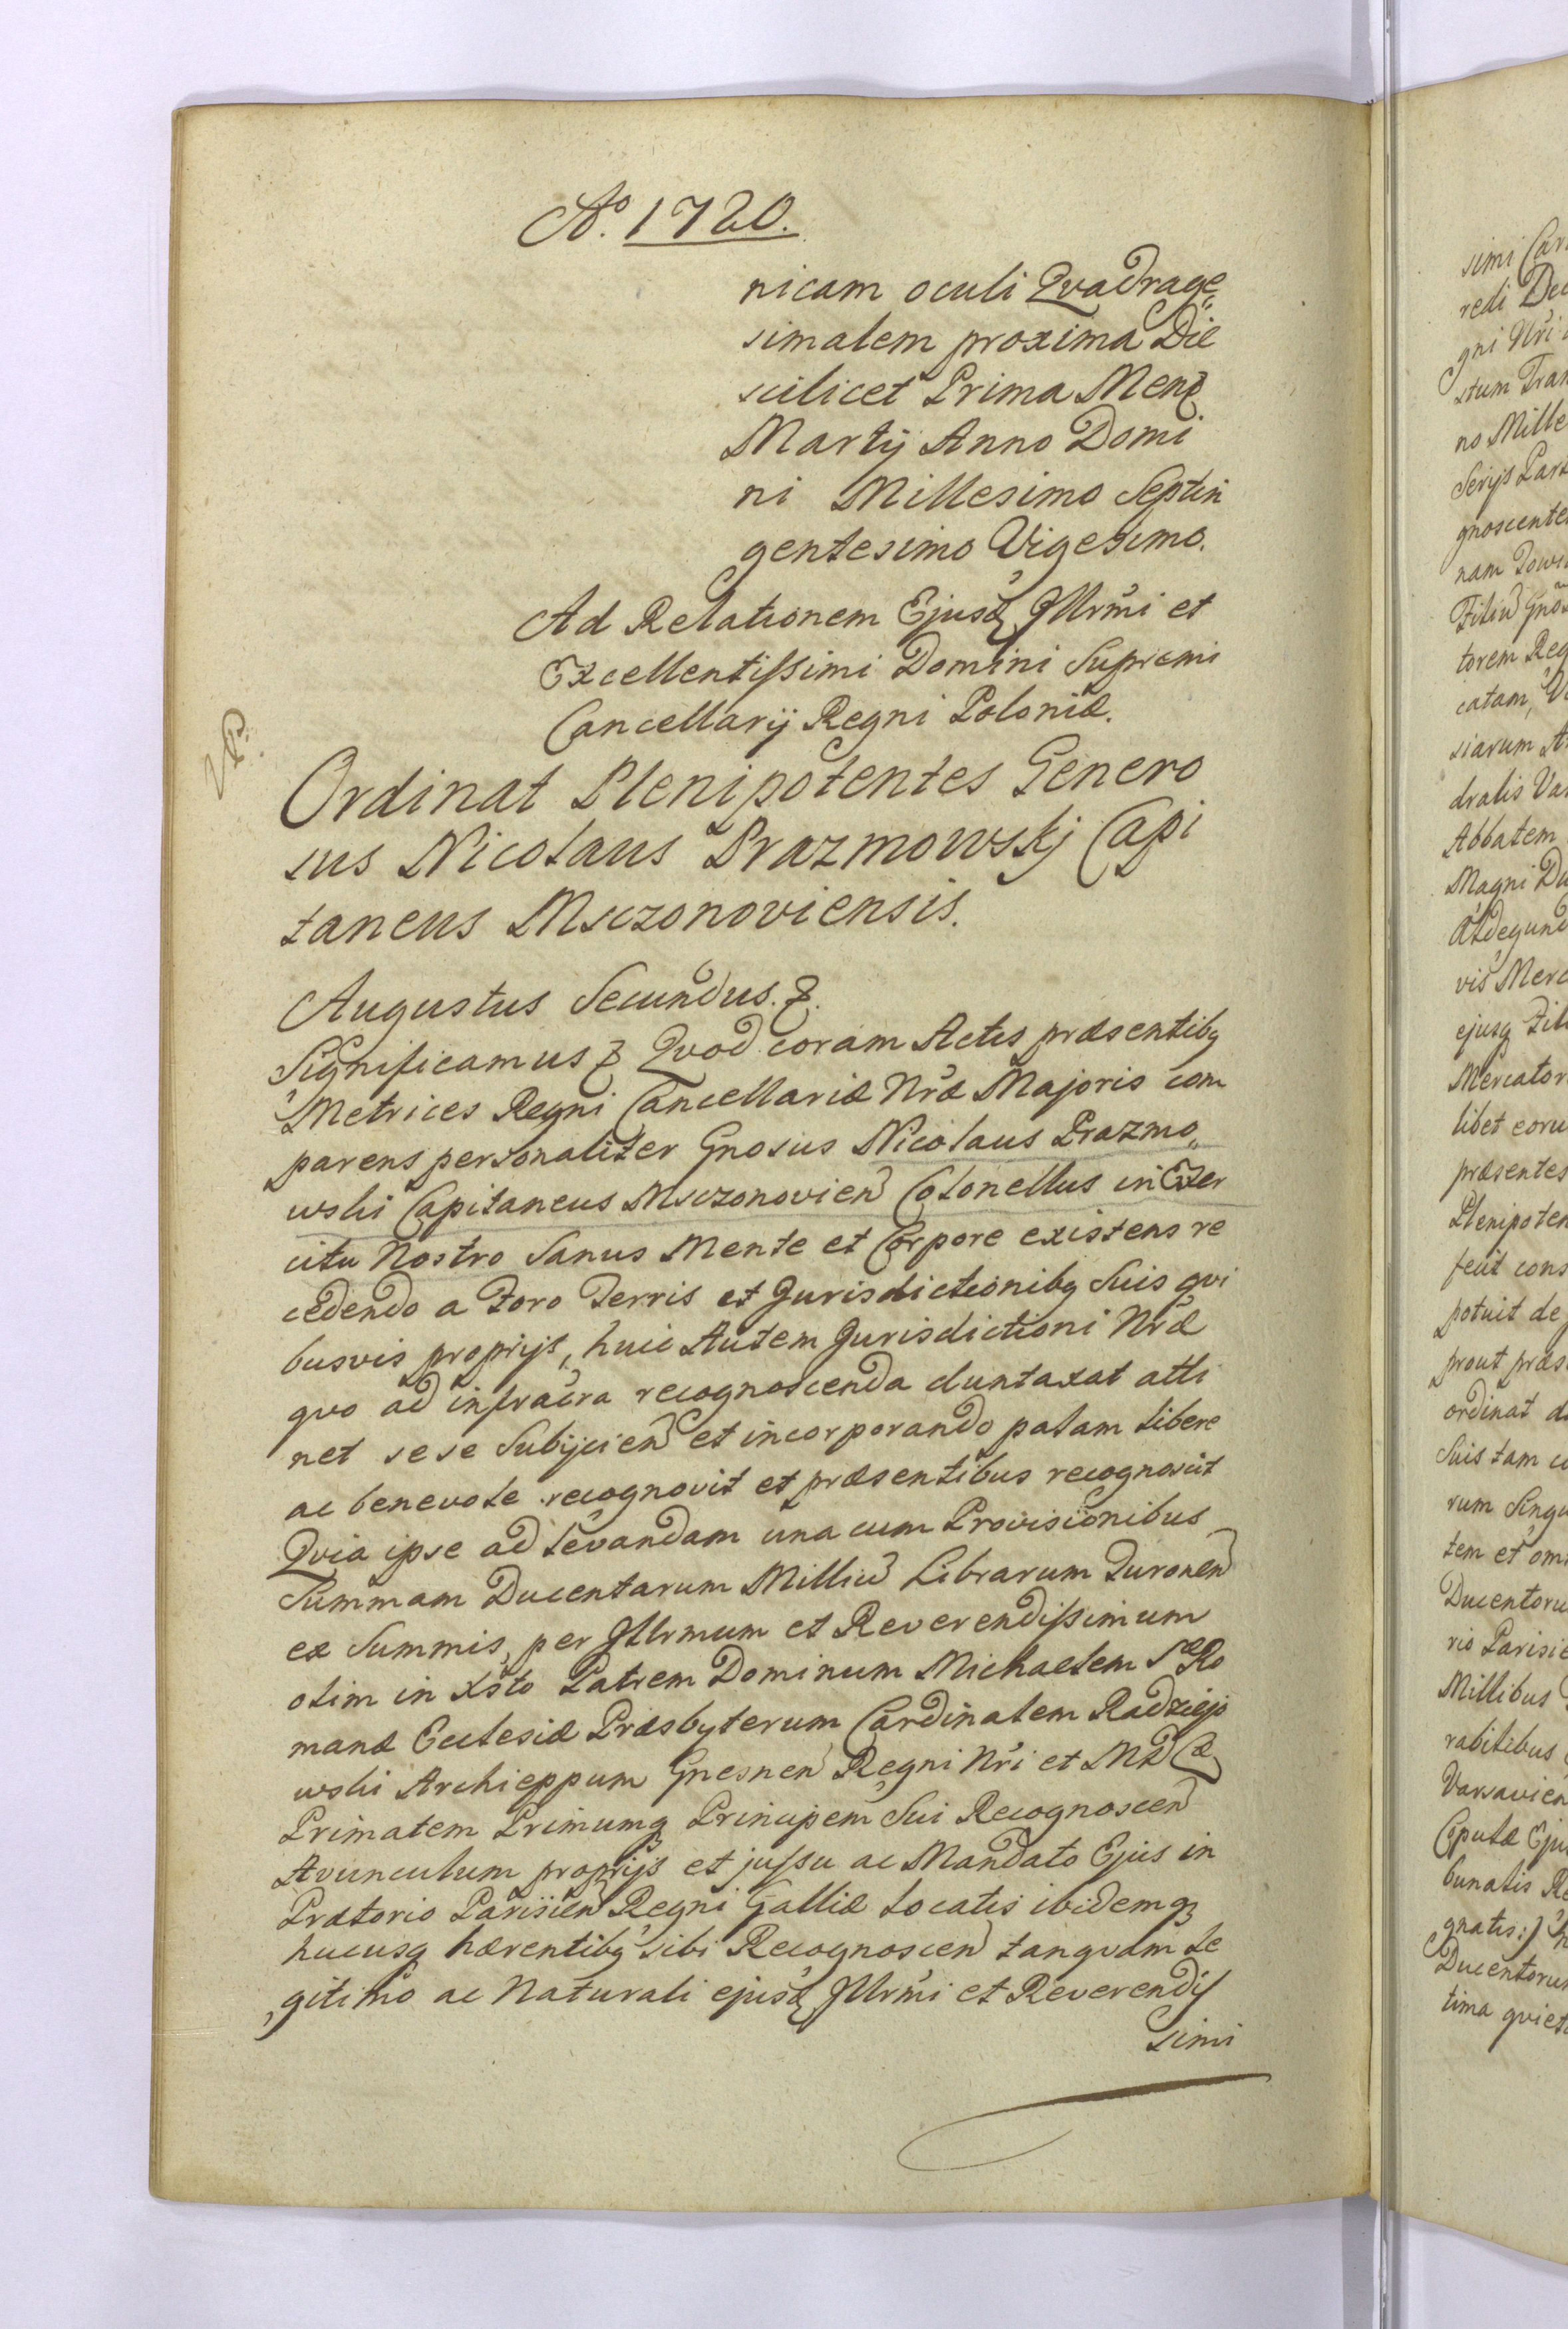 Aͦ. 1720.
nicam oculi Qvadrage„
simalem proxima Die
scilicet Prima Menę
Martij Anno Domi
ni Millesimo Septin
gentesimo Vigesimo.
Ad Relationem Ejusd Jllrmi et
Excellentiſsimi Domini Supremi
Cancellarij Regni Poloniæ.
Ordinat Plenipotentes Genero
sus Nicolaus Prazmowskj Capi
taneus Msczonoviensis.
Augustus Secundus. &.
Significamus & Qvod coram Actis præsentibq
Metrices Regni Cancellariæ Nræ Majoris com
parens personaliter Gnosus Nicolaus Prazmo„
wski Capitaneus Msczonovien Colonellus in Exer
citu Nostro Sanus Mente et Corpore existens re
cedendo a Foro Terris et Jurisdictionibq Suis qvi
busvis proprijs, huic Autem Jurisdictioni Nræ
qvo ad infracra recognoscenda duntaxat atti
net sese Subijcien et incorporando palam libere
ac benevole recognovit et præsentibus recognoscit
Qvia ipse ad levandam una cum Provisionibus
Summam Ducentarum Milliu Librarum Turonen
ex Summis, per Jllrmum et Reverendiſsimum
olim in Xsto Patrem Dominum Michaelem Sæ Ro
manæ Ecclesiæ Præsbyterum Cardinalem Radziejo
wski Archieppum Gnesnen Regni Nri et M D
Primatem Primumq Principem Sui Recognoscen
Avunculum proprijs et juſsu ac Mandato Ejus in
Prætorio Parisien Regni Galliæ locatis ibidemq
hucusq hærentibq sibi Recognoscen tanqvam le
gitimo ac Naturali ejusd Jllrmi et Reverendiſ
simi
simi
redi
gni Nri
stum
no Mille
gnoscente
nam
torem Reg
catam,
siarum
dralis Va
Abbatem
Magni Du
vis Merc
ejusq
Mercator
libet eoru
præsentes
Plenipoten
fecit cons
potuit de
prout præs
ordinat
Suis tam
rum Singu
tem et om
Ducentoru
rio Parisie
Millibus
rabilibus
Varsavien
bunalis Re
gnatis:)
Ducentorum
tima qviet